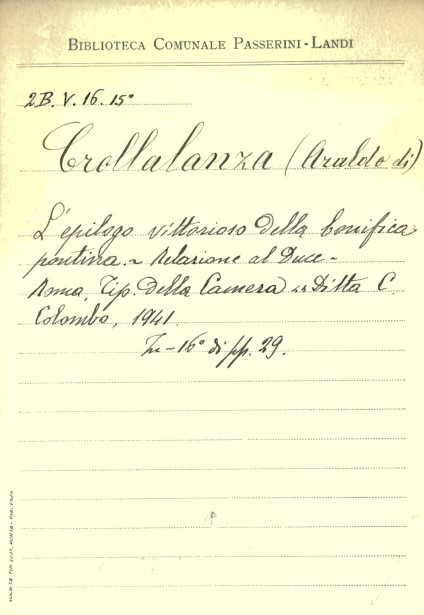 BIBLIOTECA COMUNALE PASSERINI-LANDI
2B.V.16.15º
Crollalanza (Araldo di)
L'epilogo vittorioso della bonifica
pontina. ~ Relazione al Duce -
Roma, Tip. della Camera Ditta C.
Colombo, 1941.
In-16º di pp. 29.